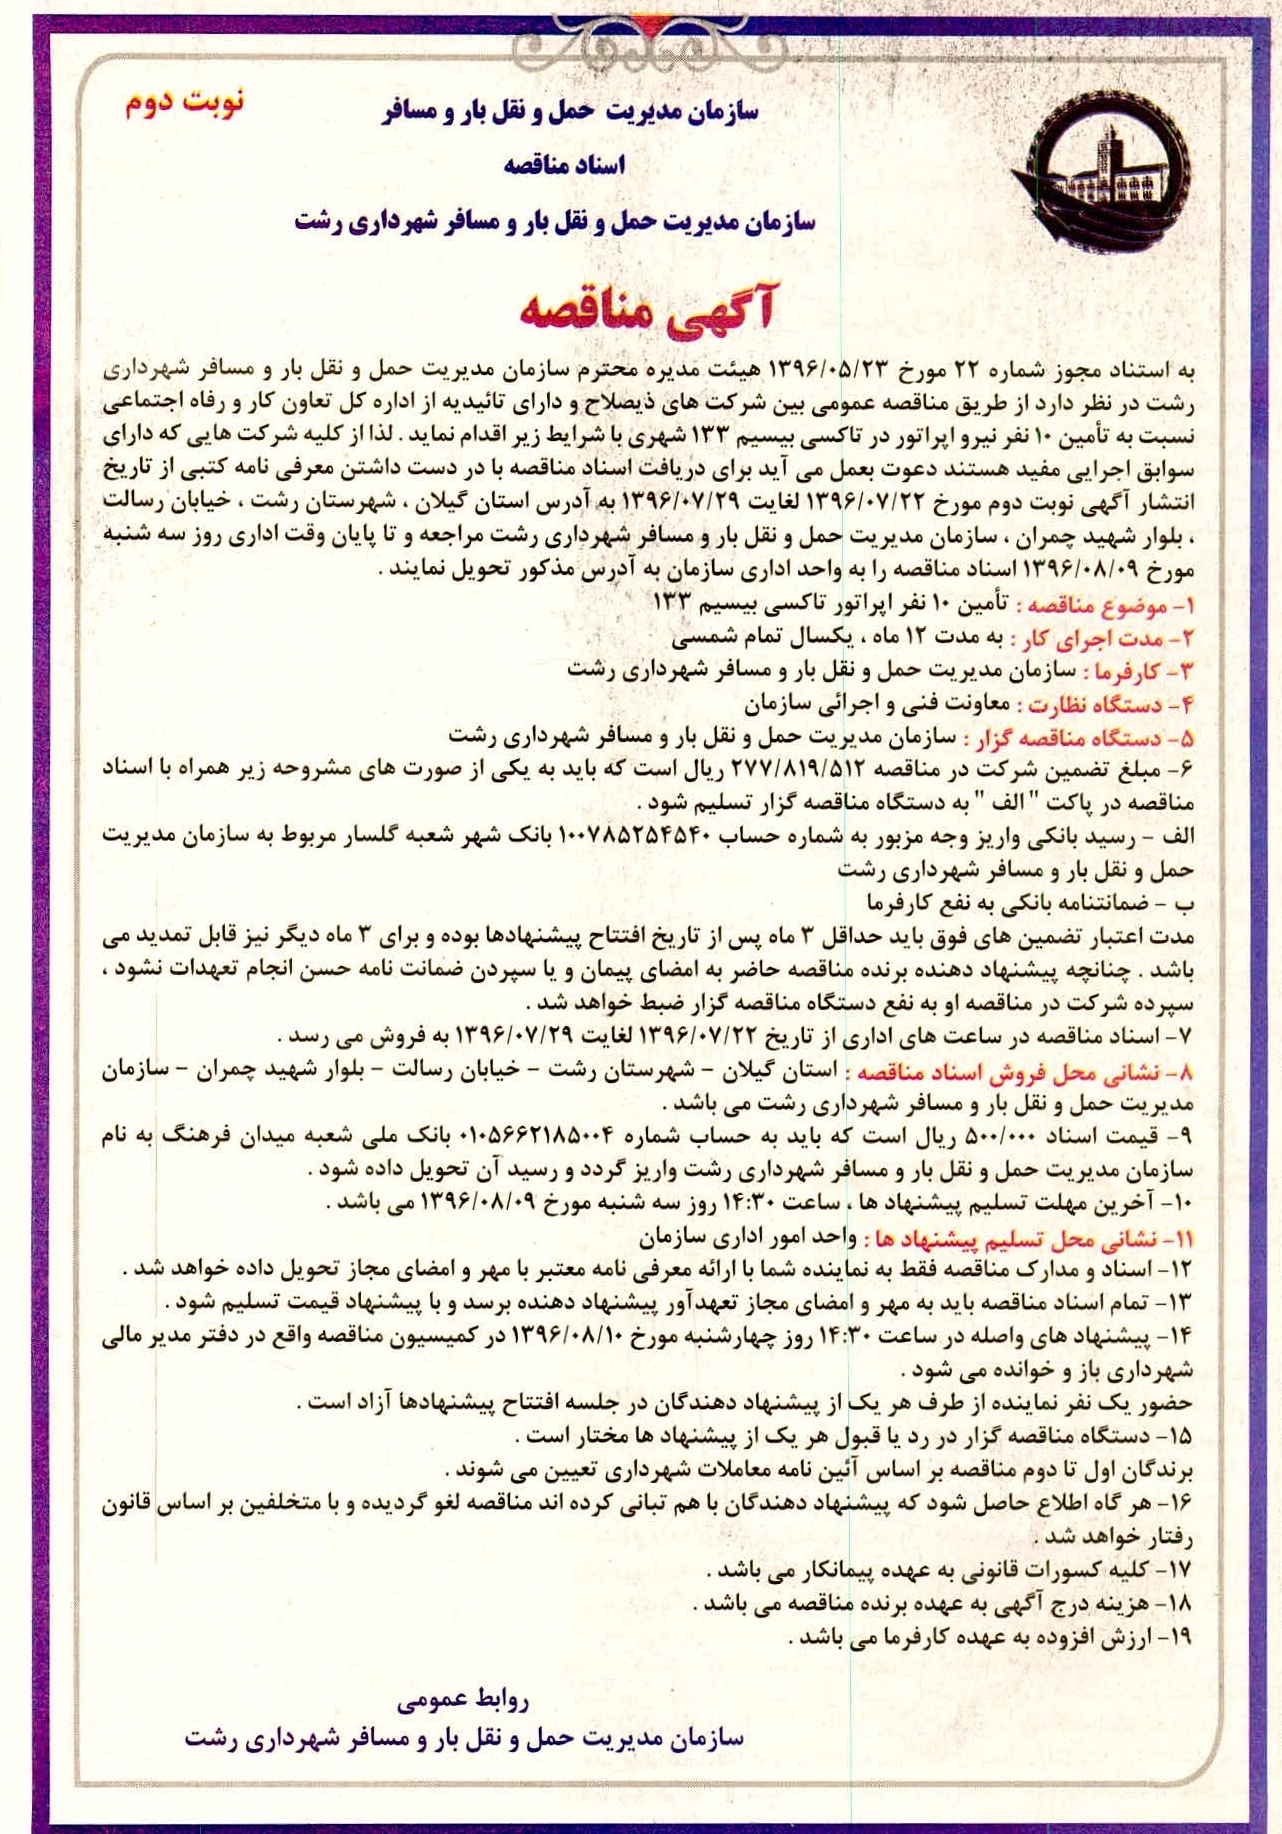 نوبت دوم
سازمان مدیریت حمل و نقل بار و مسافر
اسناد مناقصه
سازمان مدیریت حمل و نقل بار و مسافر شهرداری رشت
آگهی مناقصه
به استناد مجوز شماره ۲۲ مورخ ۱۳۹۶/۰۵/۲۳ هیئت مدیره محترم سازمان مدیریت حمل و نقل بار و مسافر شهرداری
رشت در نظر دارد از طریق مناقصه عمومی بین شرکت های ذیصلاح و دارای تائیدیه از اداره کل تعاون کار و رفاه اجتماعی
نسبت به تأمین ۱۰ نفر نیرو اپراتور در تاکسی بیسیم ۱۳۳ شهری با شرایط زیر اقدام نماید . لذا از کلیه شرکت هایی که دارای
سوابق اجرایی مفید هستند دعوت بعمل می آید برای دریافت اسناد مناقصه با در دست داشتن معرفی نامه کتبی از تاریخ
انتشار آگهی نوبت دوم مورخ ۱۳۹۶/۰۷/۲۲ لغایت ۱۳۹۶/۰۷/۲۹ به آدرس استان گیلان ، شهرستان رشت ، خیابان رسالت
، بلوار شهید چمران ، سازمان مدیریت حمل و نقل بار و مسافر شهرداری رشت مراجعه و تا پایان وقت اداری روز سه شنبه
مورخ ۱۳۹۶/۰۸/۰۹ اسناد مناقصه را به واحد اداری سازمان به آدرس مذکور تحویل نمایند .
۱- موضوع مناقصه : تأمین ۱۰ نفر اپراتور تاکسی بیسیم ۱۳۳
۲- مدت اجرای کار : به مدت ۱۲ ماه ، یکسال تمام شمسی
۳- کارفرما : سازمان مدیریت حمل و نقل بار و مسافر شهرداری رشت
۴- دستگاه نظارت : معاونت فنی و اجرائی سازمان
۵- دستگاه مناقصه گزار : سازمان مدیریت حمل و نقل بار و مسافر شهرداری رشت
۶- مبلغ تضمین شرکت در مناقصه ۲۷۷/۸۱۹/۵۱۲ ریال است که باید به یکی از صورت های مشروحه زیر همراه با اسناد
مناقصه در پاکت " الف " به دستگاه مناقصه گزار تسلیم شود .
الف - رسید بانکی واریز وجه مزبور به شماره حساب ۱۰۰۷۸۵۲۵۴۵۴۰ بانک شهر شعبه گلسار مربوط به سازمان مدیریت
حمل و نقل بار و مسافر شهرداری رشت
ب - ضمانتنامه بانکی به نفع کارفرما
مدت اعتبار تضمین های فوق باید حداقل ۳ ماه پس از تاریخ افتتاح پیشنهادها بوده و برای ۳ ماه دیگر نیز قابل تمدید می
باشد . چنانچه پیشنهاد دهنده برنده مناقصه حاضر به امضای پیمان و یا سپردن ضمانت نامه حسن انجام تعهدات نشود ،
سپرده شرکت در مناقصه او به نفع دستگاه مناقصه گزار ضبط خواهد شد .
۷- اسناد مناقصه در ساعت های اداری از تاریخ ۱۳۹۶/۰۷/۲۲ لغایت ۱۳۹۶/۰۷/۲۹ به فروش می رسد .
۸- نشانی محل فروش اسناد مناقصه : استان گیلان - شهرستان رشت - خیابان رسالت - بلوار شهید چمران - سازمان
مدیریت حمل و نقل بار و مسافر شهرداری رشت می باشد .
۹- قیمت اسناد ۵۰۰/۰۰۰ ریال است که باید به حساب شماره ۰۱۰۵۶۶۲۱۸۵۰۰۴ بانک ملی شعبه میدان فرهنگ به نام
سازمان مدیریت حمل و نقل بار و مسافر شهرداری رشت واریز گردد و رسید آن تحویل داده شود .
۱۰- آخرین مهلت تسلیم پیشنهاد ها ، ساعت ۱۴:۳۰ روز سه شنبه مورخ ۱۳۹۶/۰۸/۰۹ می باشد .
۱۱- نشانی محل تسلیم پیشنهاد ها : واحد امور اداری سازمان
۱۲- اسناد و مدارک مناقصه فقط به نماینده شما با ارائه معرفی نامه معتبر با مهر و امضای مجاز تحویل داده خواهد شد .
۱۳- تمام اسناد مناقصه باید به مهر و امضای مجاز تعهدآور پیشنهاد دهنده برسد و با پیشنهاد قیمت تسلیم شود .
۱۴- پیشنهاد های واصله در ساعت ۱۴:۳۰ روز چهارشنبه مورخ ۱۳۹۶/۰۸/۱۰ در کمیسیون مناقصه واقع در دفتر مدیر مالی
شهرداری باز و خوانده می شود .
حضور یک نفر نماینده از طرف هر یک از پیشنهاد دهندگان در جلسه افتتاح پیشنهادها آزاد است .
۱۵- دستگاه مناقصه گزار در رد یا قبول هر یک از پیشنهاد ها مختار است .
برندگان اول تا دوم مناقصه بر اساس آئین نامه معاملات شهرداری تعیین می شوند .
۱۶- هر گاه اطلاع حاصل شود که پیشنهاد دهندگان با هم تبانی کرده اند مناقصه لغو گردیده و با متخلفین بر اساس قانون
رفتار خواهد شد .
۱۷- کلیه کسورات قانونی به عهده پیمانکار می باشد .
۱۸- هزینه درج آگهی به عهده برنده مناقصه می باشد .
۱۹- ارزش افزوده به عهده کارفرما می باشد .
روابط عمومی
سازمان مدیریت حمل و نقل بار و مسافر شهرداری رشت